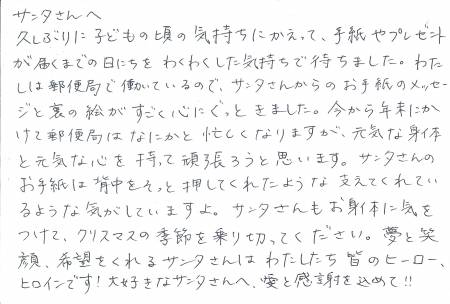 サンタさんへ
久しぶりに子どもの頃の気持ちにかえって、手紙やプレゼント
が届くまでの日にちをわくわくした気持ちで待ちました。わた
しは郵便局で働いているので、サンタさんからのお手紙のメッセー
ジと裏の絵がすごく心にぐっときました。今から年末にか
けて郵便局はなにかと忙しくなりますが、元気な身体
と元気な心を持って頑張ろうと思います。サンタさんの
お手紙は背中をそっと押してくれたような支えてくれてい
るような気がしていますよ。サンタさんもお身体に気を
つけて、クリスマスの季節を乗り切ってください。夢と笑
顔、希望をくれるサンタさんはわたしたち皆のヒーロー、
ヒロインです!大好きなサンタさんへ、愛と感謝を込めて!!